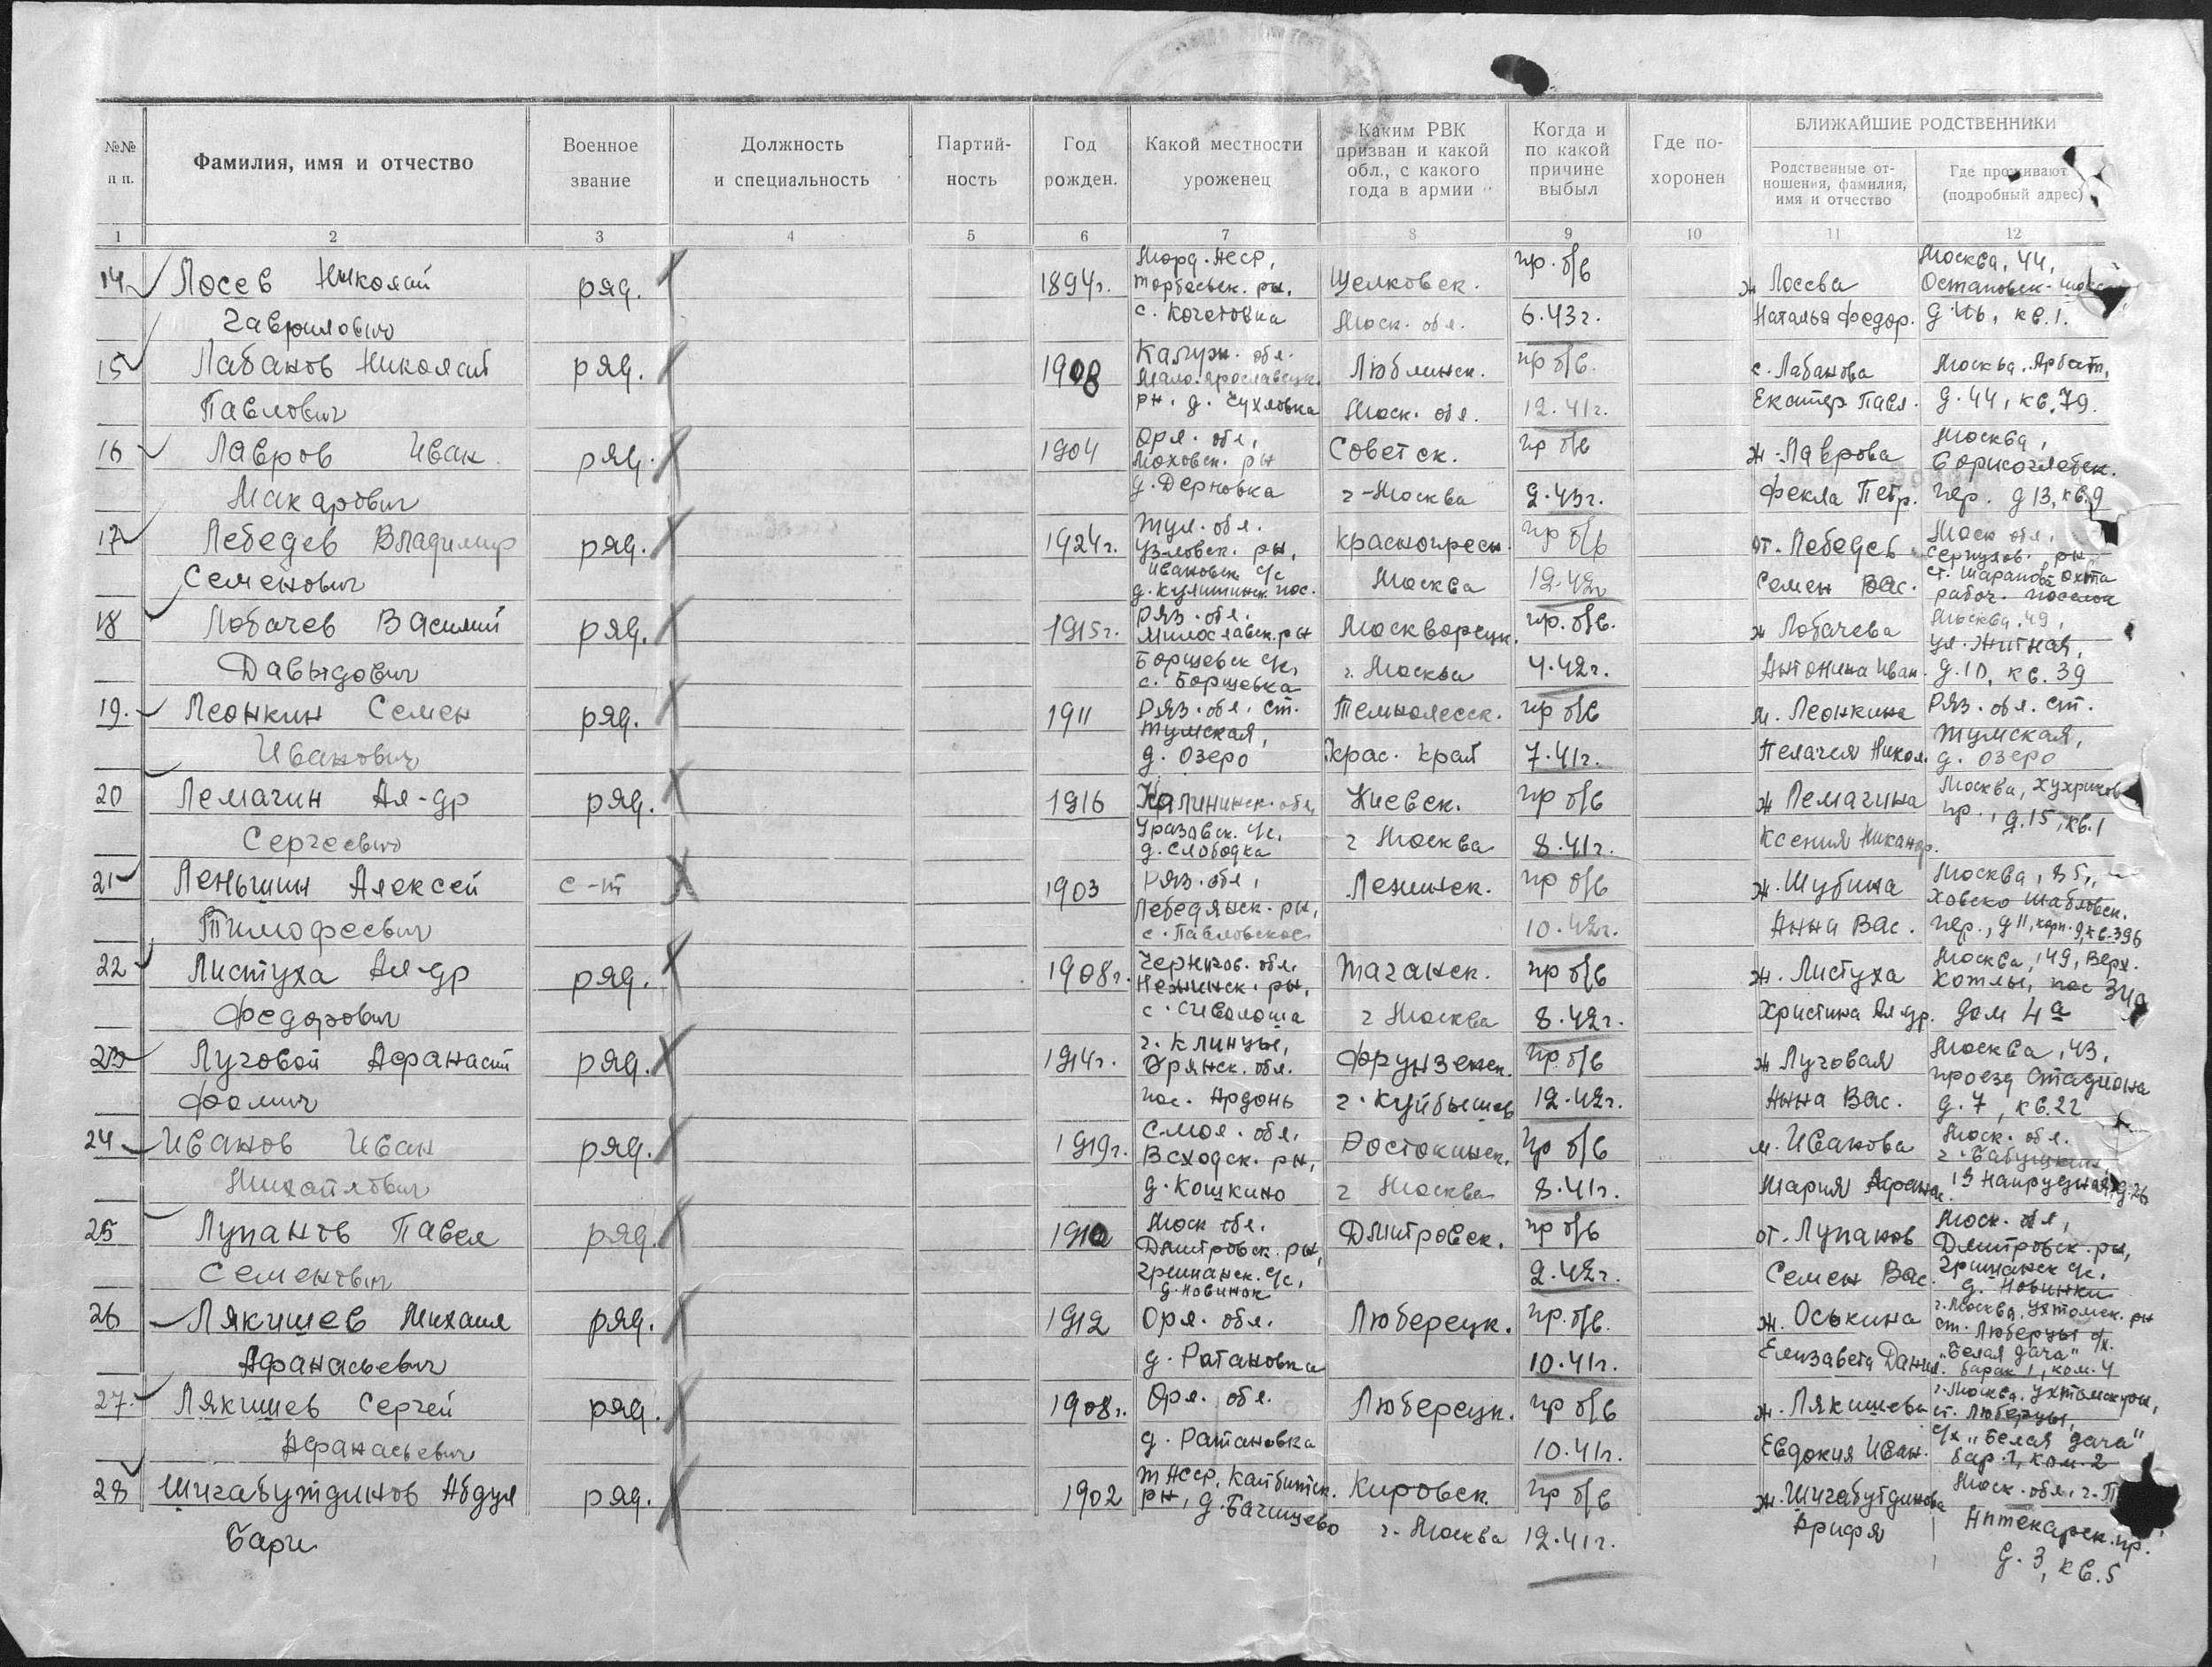 №№ п п.
Фамилия, имя и отчество
Военное звание
Должность и специальность
Партий-ность
Год рожден.
Какой местности уроженец
Каким РВК призван и какой обл., с какого года в армии
Когда и по какой причине выбыл
Где по-хоронен
БЛИЖАЙШИЕ РОДСТВЕННИКИ
Родственные от-ношения, фамилия, имя и отчество
Где проживают (подробный адрес)
1 2 3 4 5 6 7 8 9 10 11 12
14 Лосев Николай ряд. 1894г. Морд. АССР, Торбеевск. рн, Щелковск. пр. б/в ж Лосева Москва, 44,
Гаврилович с. Кочетовка Моск. обл. 6.43г. Наталья Федор. кв. 1.
15 Лабанов Николай ряд. 1908 Калуж. обл. Мало-Ярославецк. Люблинск. пр б/в. с. Лабанова Москва, Арбат,
Павлович рн, д. Сухловка Моск. обл. 12.41г. Екатер Павл. д. 44, кв. 79.
16 Лавров Иван ряд. 1904 Орл. обл, Моховск. рн Советск. пр б/в ж. Лаврова Москва, Борисоглебск.
Макарович д. Дерновка г-Москва 2.43г. Фекла Петр. пер. д 13, кв. 9
17 Лебедев Владимир ряд. 1924г. Тул. обл. Узловск. рн, Краснопресн. пр б/в от. Лебедев Моск обл. Серпухов. рн
Семенович Ивановск с/с д. пос. Москва 12.42г Семен Вас. ст. Шарапова Охта рабоч. поселок
18 Лобачев Василий ряд. 1915г. Ряз. обл. Милославск. рн Москворецк. пр. б/в. ж Лобачева Москва, 49, ул. Житная,
Давыдович Борщевск с/с, с. Борщевка г. Москва 4.42г. Антонина Иван. д. 10, кв. 39
19. Леонкин Семен ряд. 1911 Ряз. обл. ст. Тумская, Темнолесск. пр б/в м. Леонкина Ряз. обл. ст. Тумская,
Иванович д. Озеро Крас. край 7.41г. Пелагея Никол. д. Озеро
20 Лемагин Ал-др ряд. 1916 Калининск. обл, Киевск. пр б/в ж Лемагина Москва,
Сергеевич Уразовск. с/с, д. Слободка г Москва 8.41г. Ксения Никанор. пр., д. 15, кв. 1
21 Леньшин Алексей с-т 1903 Ряз. обл, Лебедянск. рн, Ленинск. пр б/в ж. Шубина Москва,
Тимофеевич с. Павловское 10.42г. Анна Вас. пер., д 11, корп. кв. 396
22 Листуха Ал-др ряд. 1908г. Чернигов. обл. Нежинск. рн, Таганск. пр б/в ж. Листуха Москва, 49, Верх. Котлы,
Федорович с. Сиволожа г Москва 8.42г. Христина Ал-др. дом 4а
23 Луговой Афанасий ряд. 1914г. г. Клинцы, Брянск. обл. Фрунзенск. пр. б/в ж Луговая Москва, 43, проезд Стадиона
Фомич пос. Ардонь г. Куйбышев 12.42г. Анна Вас. д. 7, кв. 22
24 Иванов Иван ряд. 1919г. Смол. обл. Всходск. рн, Ростокинск. пр б/в м. Иванова Моск. обл. г. Бабушкин,
Михайлович д. Кошкино г Москва 8.41г. Мария Афанас. Напрудная, д. 26
25 Лупанов Павел ряд. 1910 Моск обл. Дмитровск. рн, Дмитровск. пр б/в от. Лупанов Моск. обл, Дмитровск. рн,
Семенович Гришанск. с/с, д. Новинок 2.42г. Семен Вас. Гришанск с/с, д. Новинки
26 Лякишев Михаил ряд. 1912 Орл. обл. Люберецк. пр. б/в. ж. Оськина г. Москва, Ухтомск. рн ст. Люберцы с/х.
Афанасьевич д. Ратановка 10.41г. Елизавета Данил. "Белая дача" барак 1, ком. 4
27. Лякишев Сергей ряд. 1908г. Орл. обл. Люберецк. пр б/в ж. Лякишева г. Москва, Ухтомск рн, ст. Люберцы,
Афанасьевич д. Ратановка 10.41г. Евдокия Иван. с/х "Белая дача" бар. 1, ком. 2
28 Шигабутдинов Абдул ряд. 1902 ТАССР, Кайбитск. рн, д. Багишево Кировск. пр б/в ж. Шигабутдинова Моск. обл. г. П
Бари г. Москва 12.41г. Арифя Аптекарск. пр. д. 3, кв. 5